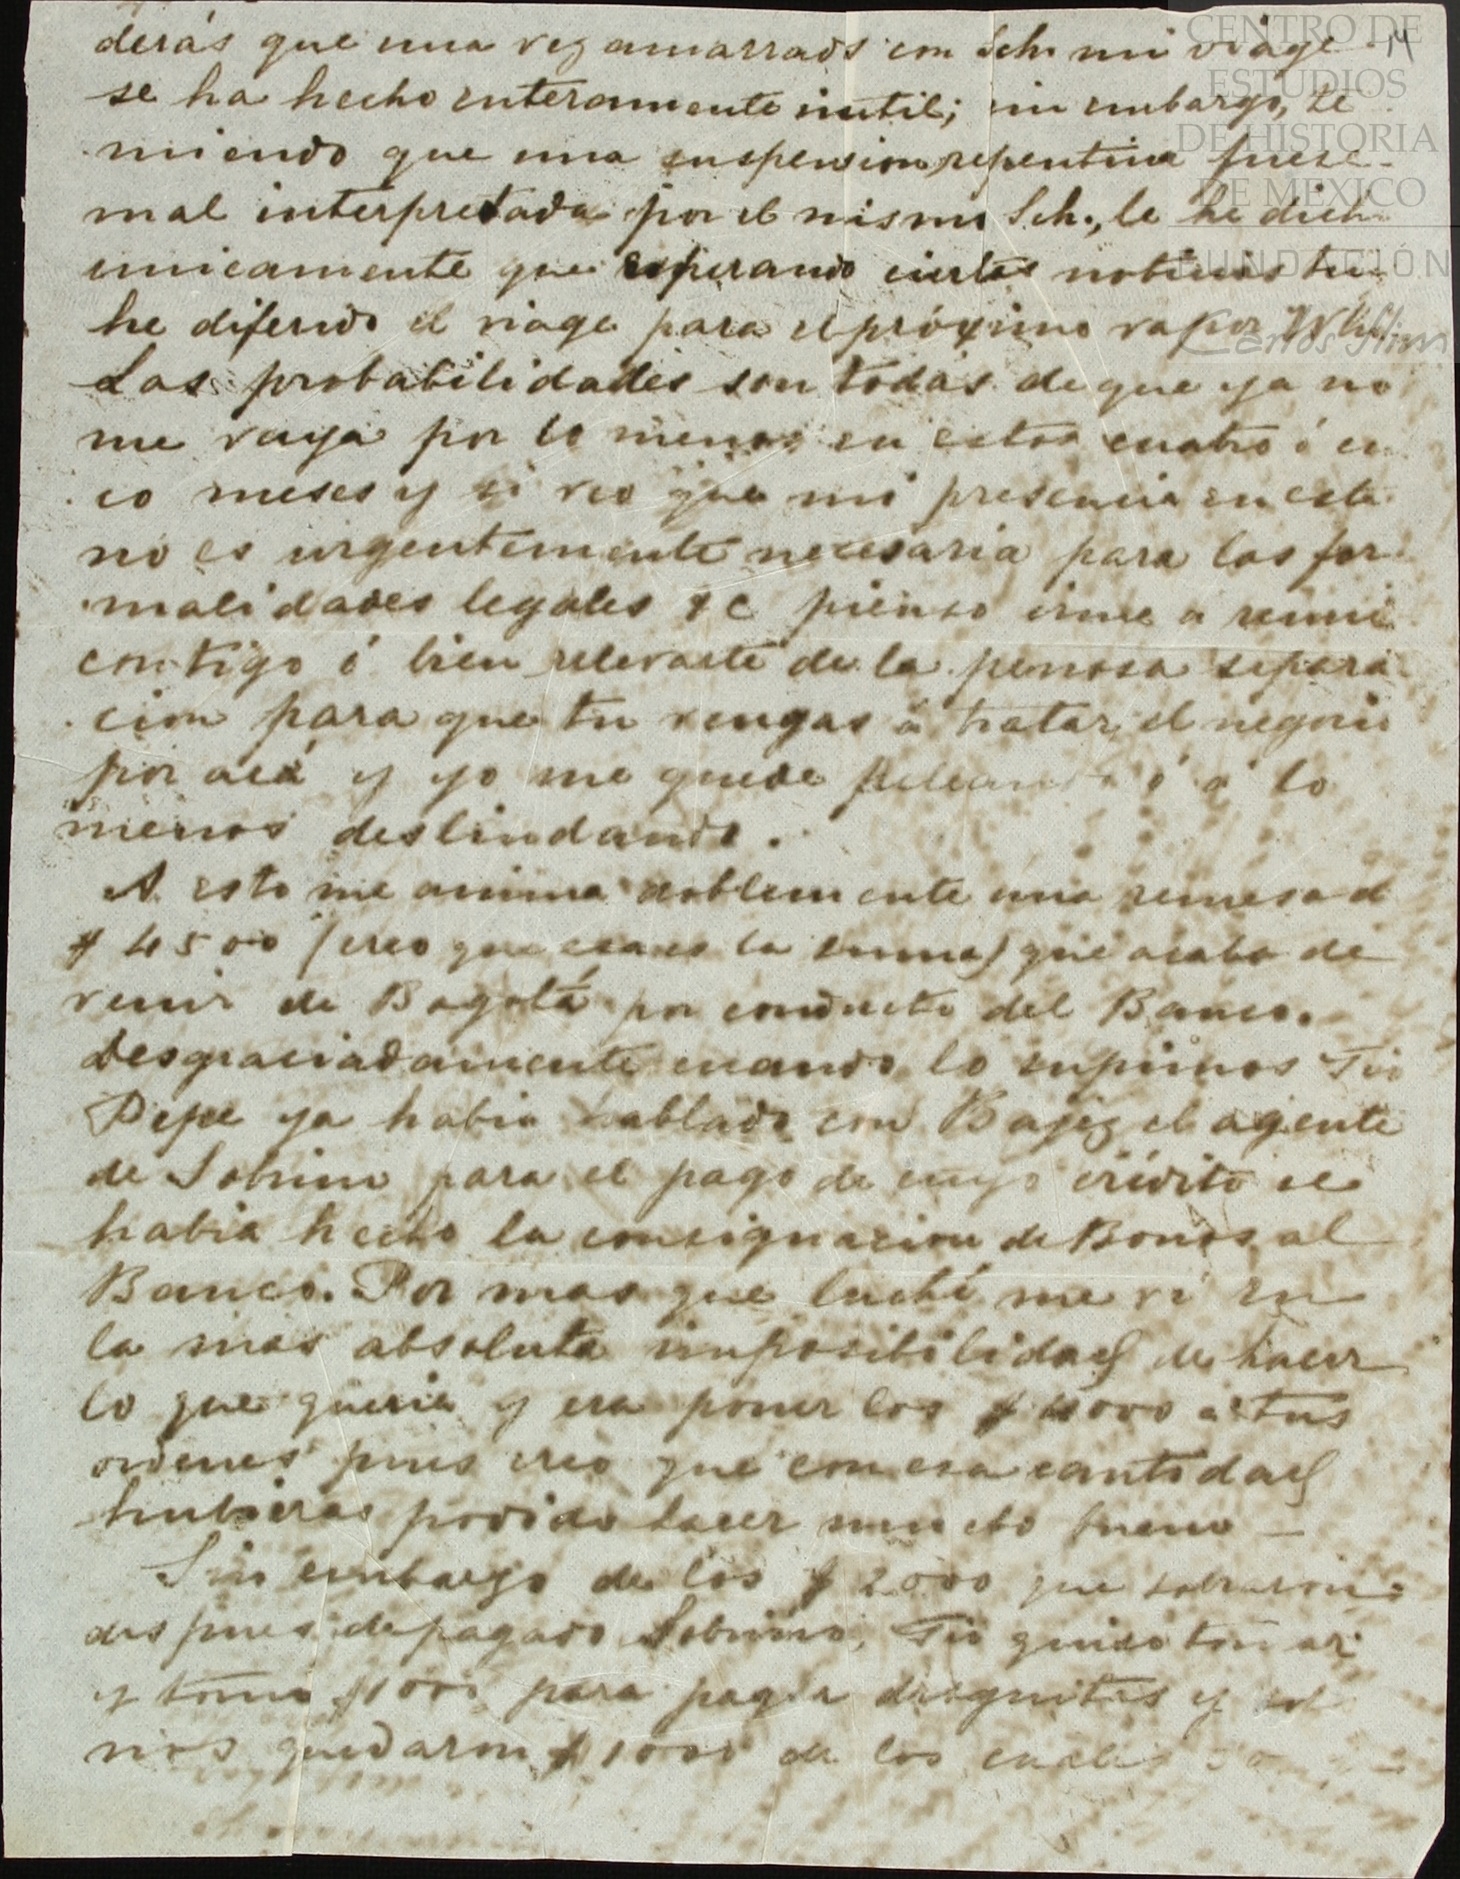 CENTRO DE
ESTUDIOS
DE HISTORIA
DE MEXICO
FUNDACIÓN
Carlos Slim
14
derás que una vez amarrados con Sch. mi viage
se ha hecho enteramente inutil; sin embargo, te
miendo que una suspension repentina fuese
mal interpretada por el mismo Sch., le he dich
unicamente que esperando ciertas noticias tu
he diferido el viage para el próximo vapor
Las probabilidades son todas de que ya no
me vaya por lo menos en estos cuatro ó cin
co meses y si veo que mi presencia en esta
no es urgentemente necesaria para las for
malidades legales &c pienso irme a reunir
contigo ó bien relevarte de la penosa separa
cion para que tu vengas á tratar el negocio
por acá y yo me quede peleando ó á lo
menos deslindando.
A esto me anima doblemente una remesa d
$ 4500 (creo que esa es la suma) que acaba de
venir de Bogotá por conducto del Banco.
Desgraciadamente cuando lo supimos Tio
Pepe ya habia hablado con el agente
de Sobrino para el pago de cuyo crédito se
habia hecho la consignacion de Bonos al
Banco. Por mas que luché me vi en
la mas absoluta imposibilidad de hacer
lo que queria y era poner los $ 4000 a tus
ordenes pues creo que con esa cantidad
hubieras podido hacer mucho bueno —
Sin embargo de los $ 2000 que sobraron
despues de pagado Sobrino, Tio quiso tomar
y tomó $1000 para pagar droguitas y
nos quedaron $ 1000 de los cuales